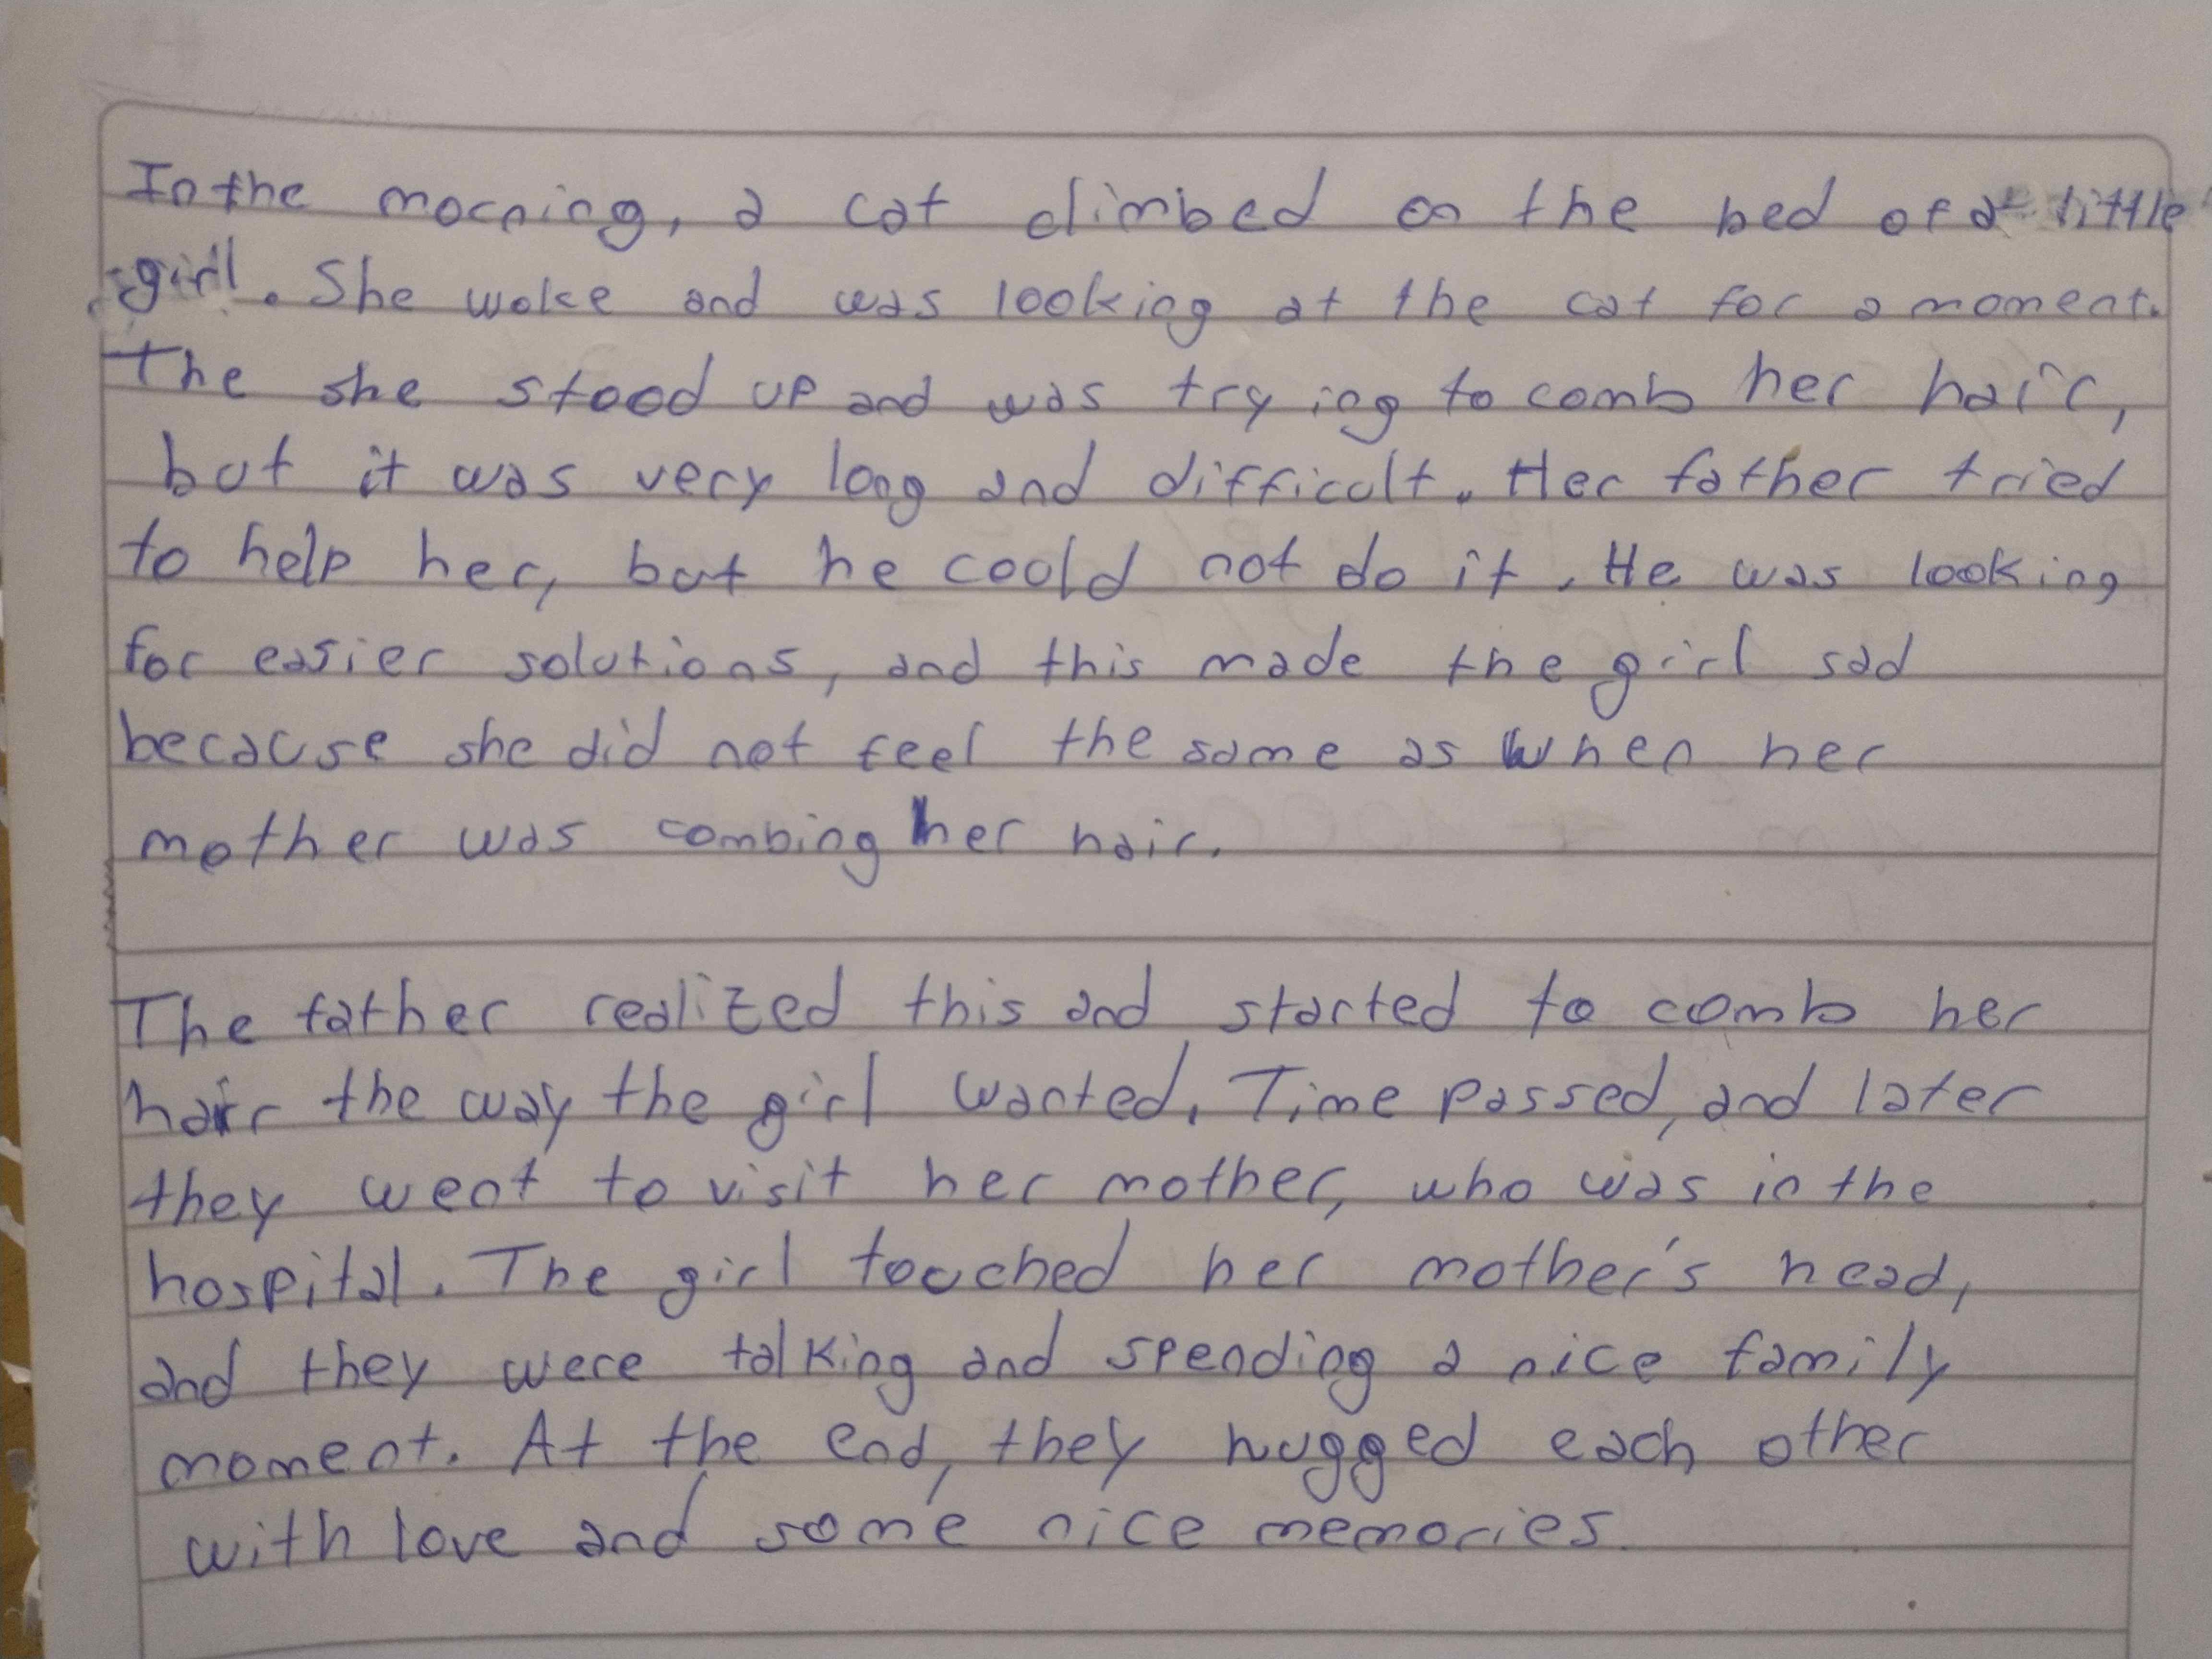 In the morning, a cat climbed on the bed of a little
girl. She woke and was looking at the cat for a moment.
The she stood up and was trying to comb her hair,
but it was very long and difficult. Her father tried
to help her, but he could not do it. He was looking
for easier solutions, and this made the girl sad
because she did not feel the same as when her
mother was combing her hair.
The father realized this and started to comb her
hair the way the girl wanted. Time passed, and later
they went to visit her mother, who was in the
hospital. The girl touched her mother's head,
and they were talking and spending a nice family
moment. At the end, they hugged each other
with love and some nice memories.